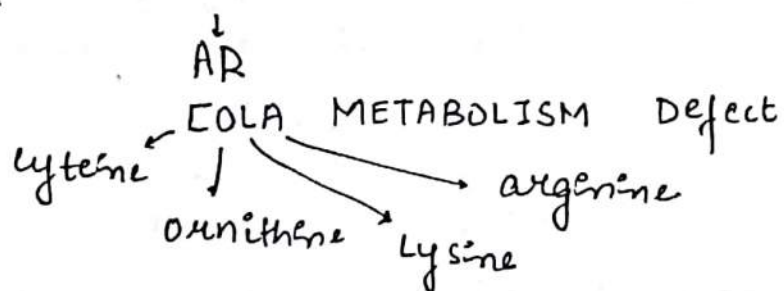 AR
COLA METABOLISM Defect
Cyteine
ornithene
Lysine
arginine